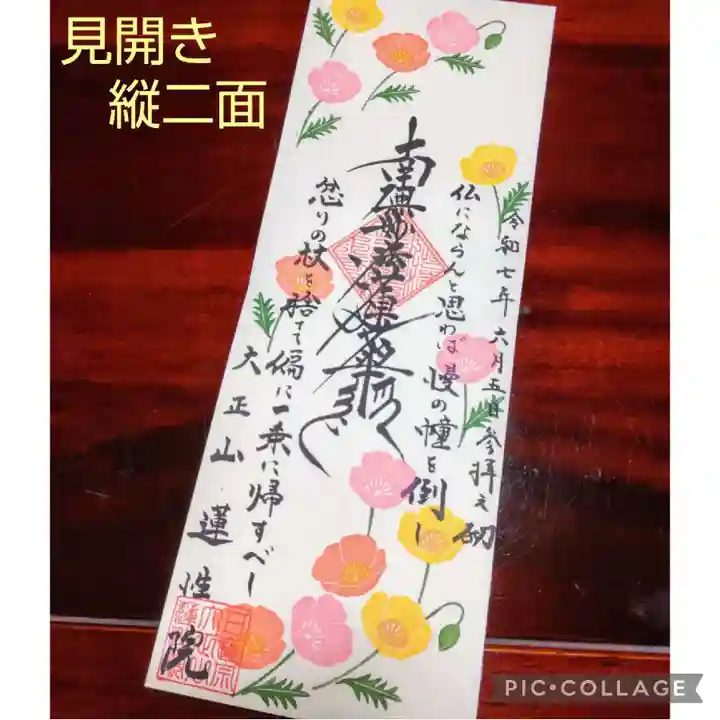 見開き
縦二面
令和七年六月五日参拝之砌
仏にならんと思わば慢の幢を倒し
南無妙法蓮華経
忿りの杖を捨てて偏に一乗に帰すべし
大正山
蓮性院
PIC•COLLAGE